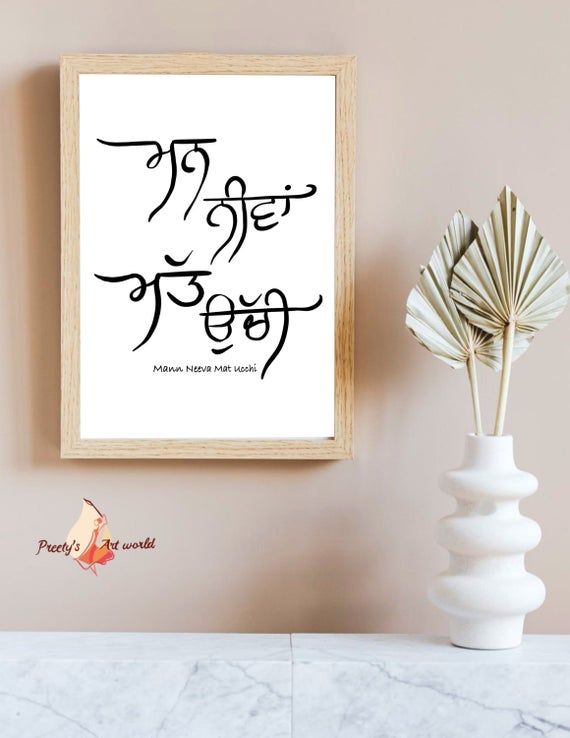 ਮਨ
ਨੀਵਾਂ
ਮੱਤ
ਉੱਚੀ
Mann Neeva Mat Ucchi
Preety's Art world